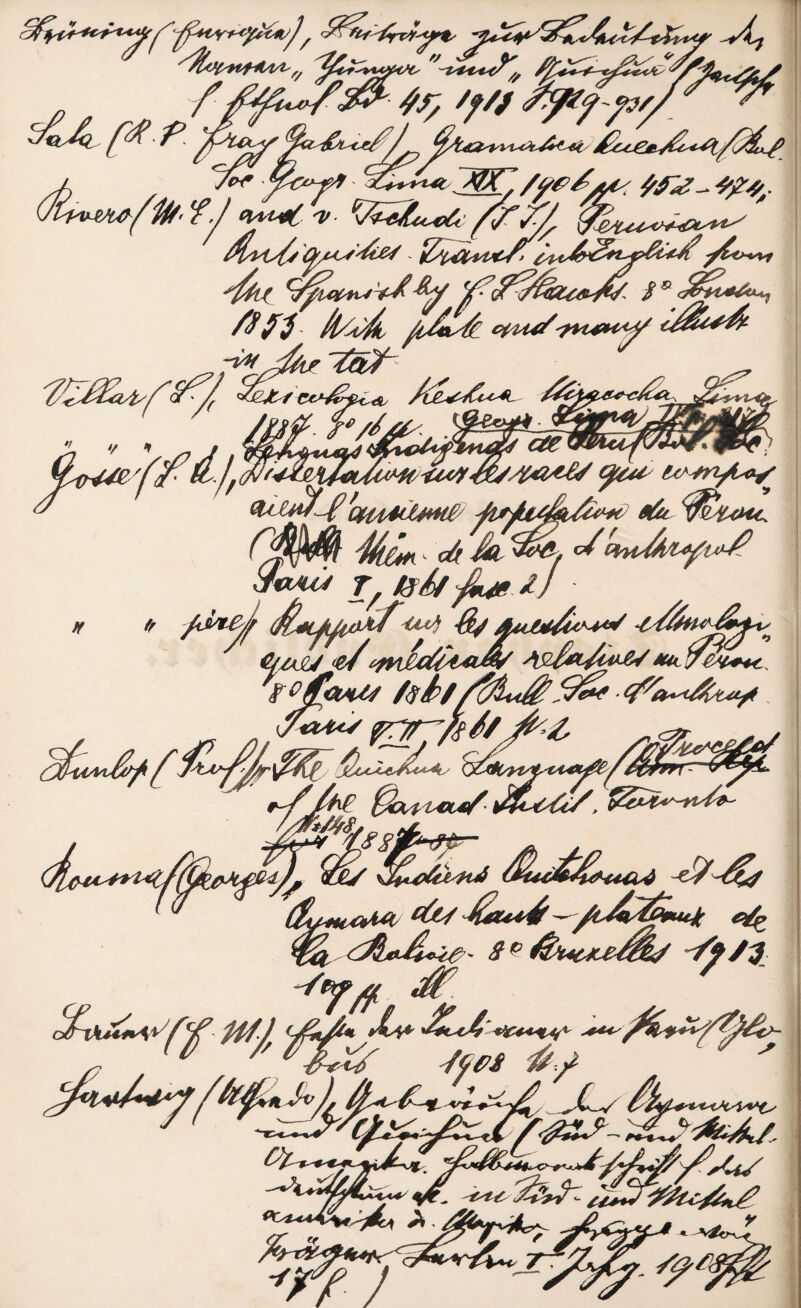 Brüning (Enrique), Beiträge zur Bedeutung der
Namen „Yunga" und „Quichua" (Zeitschr
f. Ethnol. Bd. 45, 1913 S. 929-931)
Sala (R. P. fray Gabriel), Gramatica Quechua (Bol.
Soc. Geogr. Lima XIX, 1906 pp. 452-474;
Rivero (M. E.) and v. Tschudi (J. J.), Peruvian
Antiquities. Transl. into English from
the Spanish by F. L. Hawks. 8° London
1853. With plate and many illustr
in the text
Villar (L.), Lexicologia Keshua Uiracocha. Lima
1887. 8° 16 pp. Geogr. Lima
Lenguas Indigenas de Peru (Bol. Soc.
Gosse (L. A.), Dissertation sur les races qui compos
aient l'ancienne population du Pérou.
(Mém. de la Soc. d'anthropol.
Paris I, 1861 fasc. 2)
" " père), Rapport sur les questions ethnologi
ques et médicales relatives au Pérou.
8° Paris 1861 (Bull. Soc. d'anthrop.
Paris T. II, 1861 N. 2
Dunlop (Prof.), The Quichua Language (Proceed
of the Canad. Instit. Toronto
N: 148 1887
Rouma (Georges), Les Indiens Quitchouas et les
Aymara des hauts-plateaux de
la Bolivie. 8° Bruxelles 1913.
109 pp ill.
Bauer (F. M.), Feste der Indianer in Peru (Glo,
bus 1908 N. 7
Hartwig (Alfredo), Gebräuche der Aymara
und Quichua (Süd- und Mittel-
Amerika. Halbmonatsschrift f. das
Deutschtum etc. in Süd- und Mittel
amerika u. Mexiko, von
Präger Berlin I. Jahrg. 1908 Hft
17 f.)